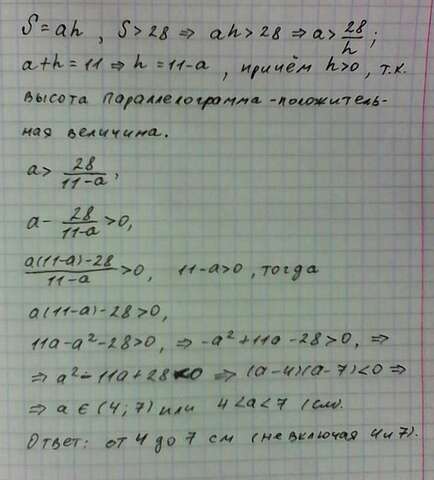 S = ah , S > 28 ⇒ ah > 28 ⇒ a > 28/h ;
a + h = 11 ⇒ h = 11 - a , причём h > 0 , т.к.
высота параллелограмма - положитель-
ная величина.
a > 28/(11-a) ,
a - 28/(11-a) > 0,
(a(11-a) - 28)/(11-a) > 0, 11-a > 0 , тогда
a(11-a) - 28 > 0,
11a - a² - 28 > 0, ⇒ -a² + 11a - 28 > 0, ⇒
⇒ a² - 11a + 28 < 0 ⇒ (a-4)(a-7) < 0 ⇒
⇒ a ∈ (4; 7) или 4 < a < 7 (см).
Ответ: от 4 до 7 см (не включая 4 и 7).